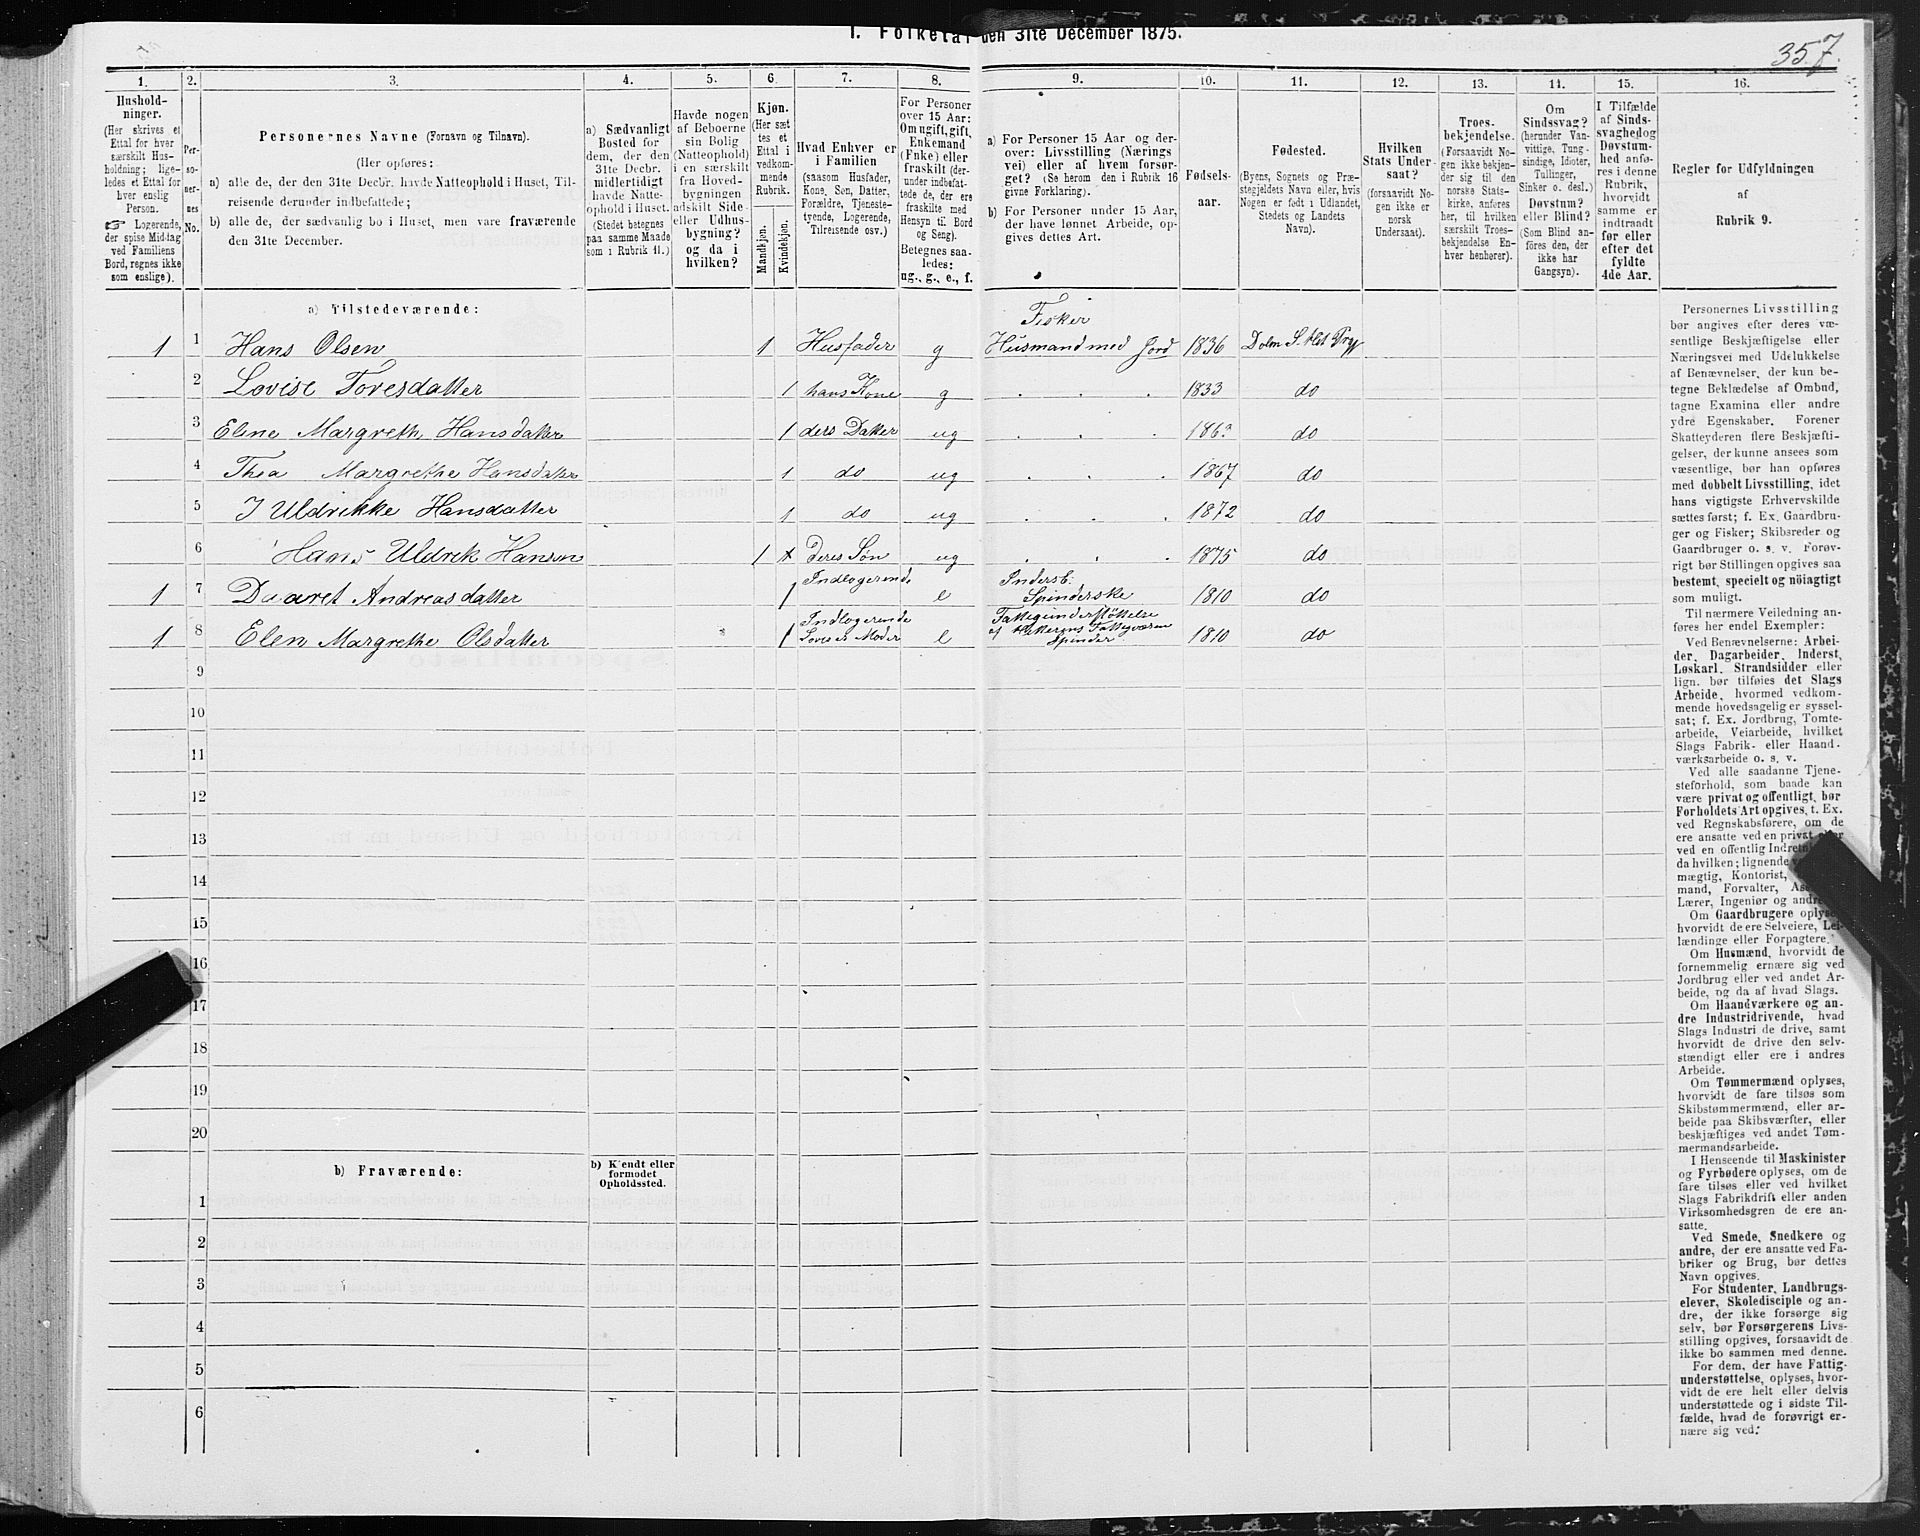 I. Folketal den 31te December 1875.
357.
1.
2.
3.
4.
5.
6.
7.
8.
9.
10.
11.
12.
13.
14.
15.
16.
Hushold-
ninger.
(Her skrives et
Ettal for hver
særskilt Hus-
holdning; lige-
ledes et Ettal for
hver enslig
Person.
☞ Logerende,
der spise Middag
ved Familiens
Bord, regnes ikke
som enslige).
Per-
so-
ner-
nes
No.
Personernes Navne (Fornavn og Tilnavn).
(Her opføres:
a) alle de, der den 31te Decbr. havde Natteophold i Huset, Til-
reisende derunder indbefattede;
b) alle de, der sædvanlig bo i Huset, men vare fraværende
den 31te December.
a) Sædvanligt
Bosted for
dem, der den
31te Decbr.
midlertidigt
havde Natte-
ophold i Huset.
(Stedet betegnes
paa samme Maade
som i Rubrik 11.)
Havde nogen
af Beboerne
sin Bolig
(Natteophold)
i en særskilt
fra Hoved-
bygningen
adskilt Side-
eller Udhus-
bygning?
og da i
hvilken?
Kjøn.
(Her sæt-
tes et
Ettal i
vedkom-
mende
Rubrik.
Mandkjøn.
Kvindekjøn.
Hvad Enhver er
i Familien
(saasom Husfader,
Kone, Søn, Datter,
Forældre, Tjeneste-
tyende, Logerende,
Tilreisende osv.)
For Personer
over 15 Aar:
Om ugift, gift,
Enkemand
(Enke) eller
fraskilt (der-
under indbefat-
tede de, der ere
fraskilte med
Hensyn til Bord
og Seng).
Betegnes saa-
ledes:
ug., g., e., f.
a) For Personer 15 Aar og der-
over: Livsstilling (Nærings-
vei) eller af hvem forsør-
get? (Se herom den i Rubrik 16
givne Forklaring).
b) For Personer under 15 Aar,
der have lønnet Arbeide, op-
gives dettes Art.
Fødsels-
aar.
Fødested.
(Byens, Sognets og Præ-
stegjeldets Navn eller, hvis
Nogen er født i Udlandet,
Stedets og Landets
Navn).
Hvilken
Stats Under-
saat?
(forsaavidt No-
gen ikke er
norsk
Undersaat).
Troes-
bekjendelse.
(Forsaavidt No-
gen ikke bekjen-
der sig til den
norske Stats-
kirke, anføres
her, til hvilken
særskilt Troes-
bekjendelse En-
hver henhører).
Om
Sindssvag?
(herunder Van-
vittige, Tung-
sindige, Idioter,
Tullinger,
Sinker o. desl.)
Døvstum?
eller Blind?
(Som Blind an-
føres den, der
ikke har
Gangsyn).
I Tilfælde
af Sinds-
svaghed og
Døvstum-
hed anfø-
res i denne
Rubrik,
hvorvidt
samme er
indtraadt
før eller
efter det
fyldte
4de Aar.
Regler for Udfyldningen
af
Rubrik 9.
a) Tilstedeværende:
Fisker
1 1 Hans Olsen 1 Husfader g Husmand med Jord 1836
2 Lovise Toresdatter 1 hans Kone g . . . 1833 do
3 Elene Margreth Hansdatter 1 ders Datter ug . . . do
4 Thea Margrethe Hansdatter 1 do ug . . . 1867 do
5 J Uldrikke Hansdatter 1 do ug . . . 1872 do
6 Hans Uldrik Hansen 1 Deres Søn ug . . . 1875 do
Indlogerende Inderst:
1 7 Daaret Andreasdatter 1 e Spinderske 1810 do
Indlogerende Fattigunderstøttelse
1 8 Elen Margrethe Olsdatter 1 Lovises Moder e af Fattigvæsen 1810 do
Spinder
9
10
11
12
13
14
15
16
17
18
19
20
b) Fraværende:
b) Kjendt eller
formodet
Opholdssted.
1
2
3
4
5
6
Personernes Livsstilling
bør angives efter deres væ-
sentlige Beskjæftigelse eller
Næringsvei med Udelukkelse
af Benævnelser, der kun be-
tegne Beklædelse af Ombud,
tagne Examina eller andre
ydre Egenskaber. Forener
Skatteyderen flere Beskjæfti-
gelser, der kunne ansees som
væsentlige, bør han opføres
med dobbelt Livsstilling, idet
hans vigtigste Erhvervskilde
sættes først; f. Ex. Gaardbru-
ger og Fisker; Skibsreder og
Gaardbruger o. s. v. Forøv-
rigt bør Stillingen opgives saa
bestemt, specielt og nøiagtigt
som muligt.
Til nærmere Veiledning an-
føres her endel Exempler:
Ved Benævnelserne: Arbei-
der, Dagarbeider, Inderst,
Løskarl, Strandsidder eller
lign. bør tilføies det Slags
Arbeide, hvormed vedkom-
mende hovedsagelig er syssel-
sat; f. Ex. Jordbrug, Tomte-
arbeide, Veiarbeide, hvilket
Slags Fabrik- eller Haand-
værksarbeide o. s. v.
Ved alle saadanne Tjene-
steforhold, som baade kan
være privat og offentligt, bør
Forholdets Art opgives, t. Ex.
ved Regnskabsførere, om de
ere ansatte ved en privat eller
ved en offentlig
da hvilken; lignende
mægtig, Kontorist,
mand, Forvalter,
Lærer, Ingeniør og
Om Gaardbrugere
hvorvidt de ere Selveiere, Lei-
lændinge eller Forpagtere.
Om Husmænd, hvorvidt de
fornemmelig ernære sig ved
Jordbrug eller ved andet Ar-
beide, og da af hvad Slags.
Om Haandværkere og an-
dre Industridrivende, hvad
Slags Industri de drive, samt
hvorvidt de drive den selv-
stændigt eller ere i andres
Arbeide.
Om Tømmermænd oplyses,
hvorvidt de fare tilsøs som
Skibstømmermænd, eller ar-
beide paa Skibsværfter, eller
beskjæftiges ved andet Tøm-
mermandsarbeide.
I Henseende til Maskinister
og Fyrbødere oplyses, om de
fare tilsøs eller ved hvilket
Slags Fabrikdrift eller anden
Virksomhedsgren de ere an-
satte.
Ved Smede, Snedkere og
andre, der ere ansatte ved Fa-
briker og Brug, bør dettes
Navn opgives.
For Studenter, Landbrugs-
elever, Skoledisciple og an-
dre, der ikke forsørge sig
selv, bør Forsørgerens Livs-
stilling opgives, forsaavidt de
ikke bo sammen med denne.
For dem, der have Fattig-
understøttelse, oplyses, hvor-
vidt de ere helt eller delvis
understøttede og i sidste Til-
fælde, hvad de forøvrigt er-
nære sig ved.